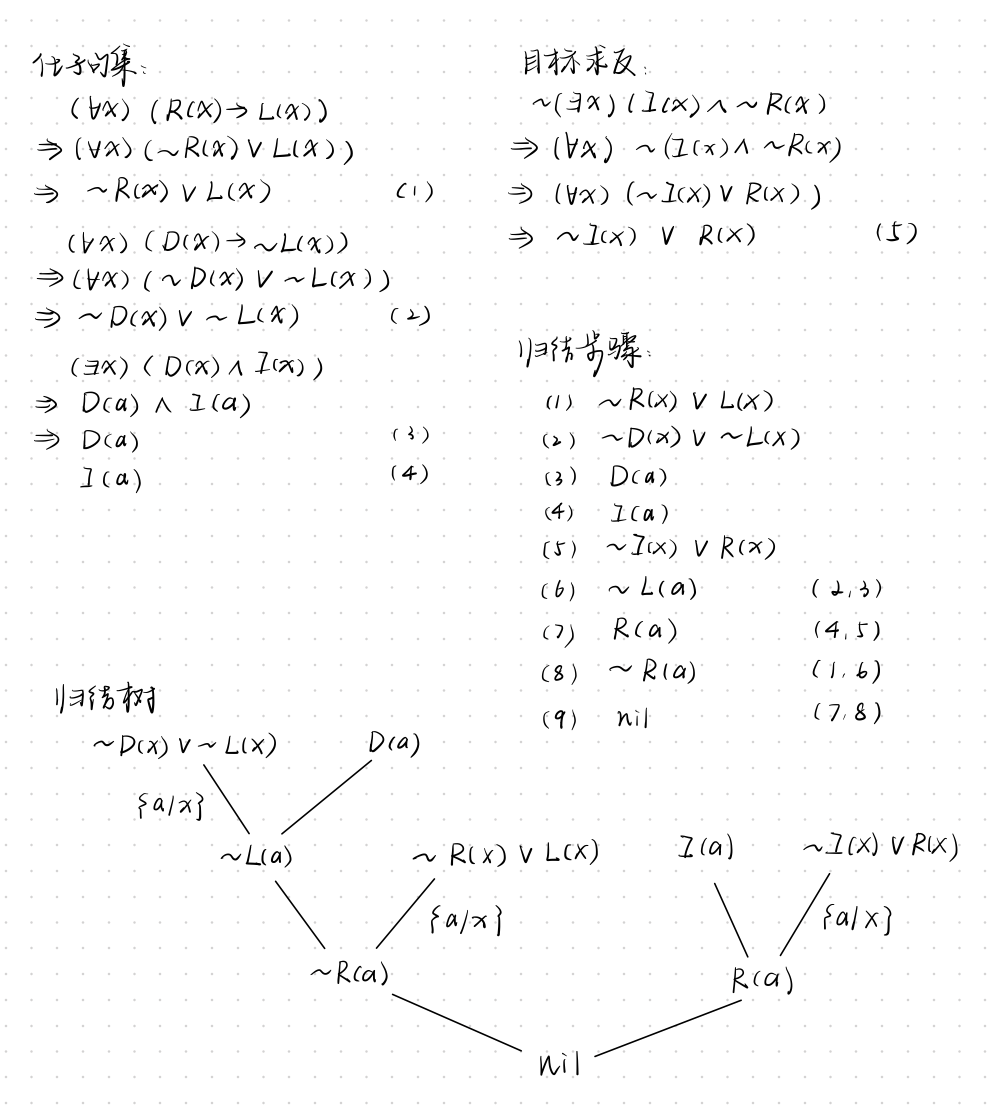 化子句集:
(∀x) (R(x)→L(x))
⇒ (∀x) (~R(x) ∨ L(x))
⇒ ~R(x) ∨ L(x) (1)
(∀x) (D(x)→~L(x))
⇒ (∀x) (~D(x) ∨ ~L(x))
⇒ ~D(x) ∨ ~L(x) (2)
(∃x) (D(x) ∧ I(x))
⇒ D(a) ∧ I(a)
⇒ D(a) (3)
I(a) (4)
目标求反:
~(∃x) (I(x) ∧ ~R(x)
⇒ (∀x) ~(I(x) ∧ ~R(x)
⇒ (∀x) (~I(x) ∨ R(x))
⇒ ~I(x) ∨ R(x) (5)
归结步骤:
(1) ~R(x) ∨ L(x)
(2) ~D(x) ∨ ~L(x)
(3) D(a)
(4) I(a)
(5) ~I(x) ∨ R(x)
(6) ~L(a) (2,3)
(7) R(a) (4,5)
(8) ~R(a) (1,6)
(9) nil (7,8)
归结树
~D(x) ∨ ~L(x) D(a)
{a/x}
~L(a) ~R(x) ∨ L(x) I(a) ~I(x) ∨ R(x)
{a/x} {a/x}
~R(a) R(a)
nil